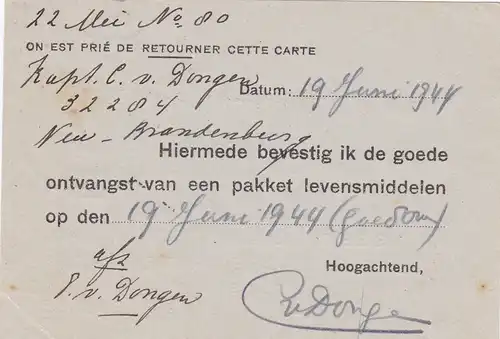 22 Mei No 80
ON EST PRIÉ DE RETOURNER CETTE CARTE
Kapt. C. v. Dongen
Datum: 19 Juni 1944
32284
Neu-Brandenburg
Hiermede bevestig ik de goede
ontvangst van een pakket levensmiddelen
op den 19 Juni 1944
Hoogachtend,
afz
P. v. Dongen
CvDongen